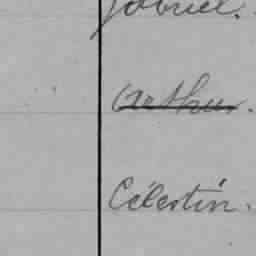 Gabriel.
Arthur.
Célestin.